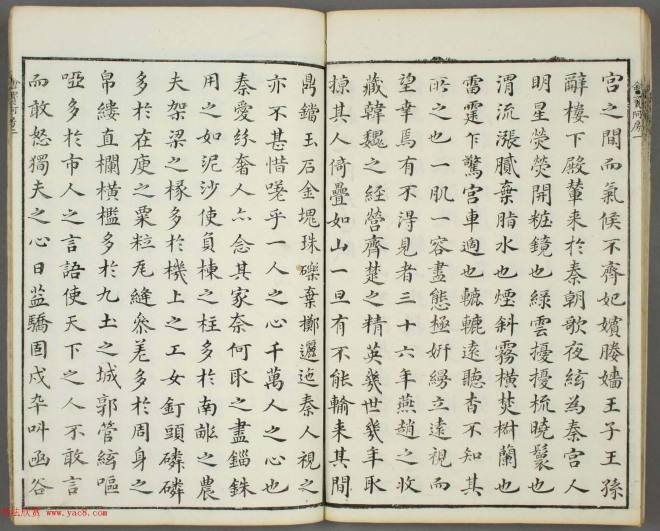 阿房一
宮之間而氣候不齊妃嬪媵嬙王子王孫
辭樓下殿輦来於秦朝歌夜絃為秦宮人
明星熒熒開粧鏡也綠雲擾擾梳曉鬟也
渭流漲膩棄脂水也煙斜霧橫焚椒蘭也
雷霆乍驚宮車過也轆轆遠聽杳不知其
所之也一肌一容盡態極妍縵立遠視而
望幸焉有不得見者三十六年燕趙之收
藏韓魏之經營齊楚之精英幾世幾年取
掠其人倚疊如山一旦有不能輸来其間
鼎鐺玉石金塊珠礫棄擲邐迤秦人視之
亦不甚惜嗟乎一人之心千萬人之心也
秦愛紛奢人亦念其家奈何取之盡錙銖
用之如泥沙使負棟之柱多於南畝之農
夫架梁之椽多於機上之工女釘頭磷磷
多於在庾之粟粒瓦縫參差多於周身之
帛縷直欄橫檻多於九土之城郭管絃嘔
啞多於市人之言語使天下之人不敢言
而敢怒獨夫之心日益驕固戍卒叫函谷
法欣赏 www.yac8.com